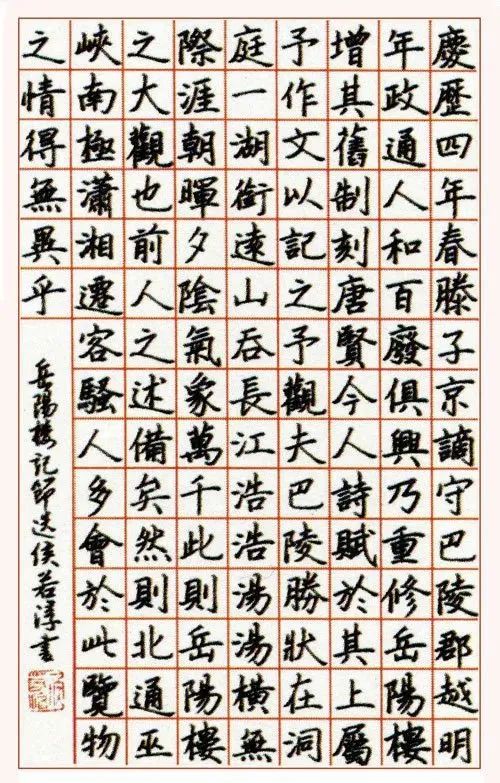 慶歷四年春滕子京謫守巴陵郡越明
年政通人和百廢俱興乃重修岳陽樓
增其舊制刻唐賢今人詩賦於其上屬
予作文以記之予觀夫巴陵勝狀在洞
庭一湖銜遠山吞長江浩浩湯湯橫無
際涯朝暉夕陰氣象萬千此則岳陽樓
之大觀也前人之述備矣然則北通巫
峽南極瀟湘遷客騷人多會於此覽物
之情得無異乎
岳陽樓記節選侯若淳書